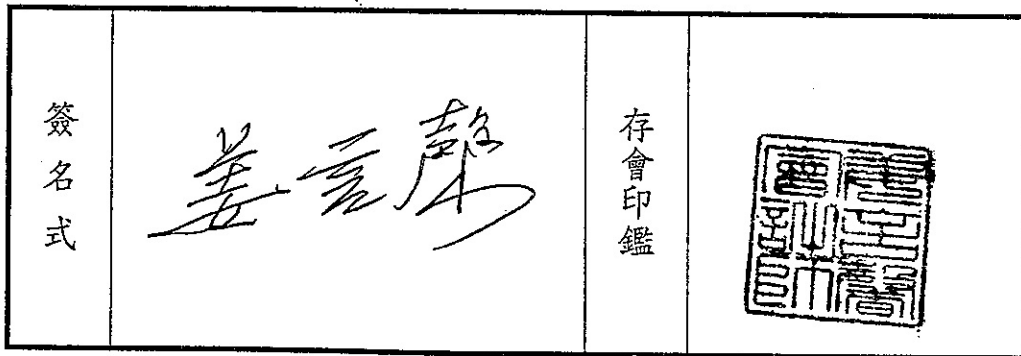 簽名式
姜言馨
存會印鑑